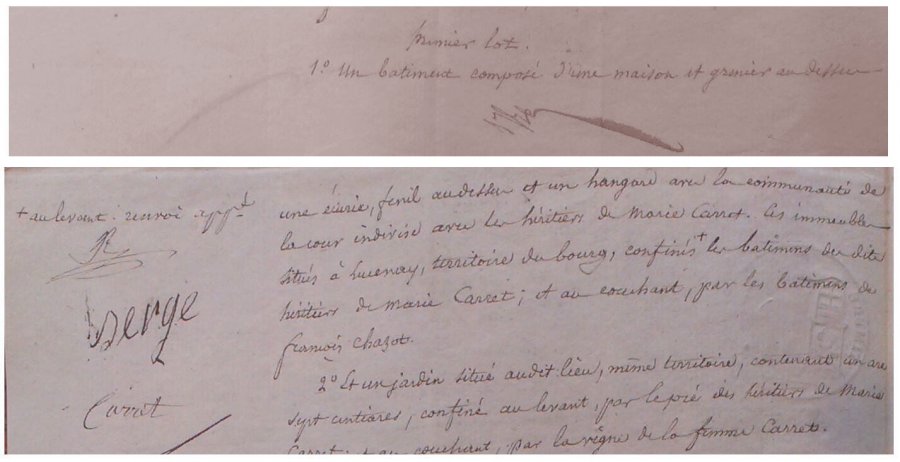 premier lot.
1º Un batiment composé d'une maison et grenier au dessu
+ au levant: renvoi app.té
une écurie, fenil au dessu et un hangard avec la communauté de
la cour indivise avec les héritiers de Marie Carret. Ces immeubles
situés à Lucenay, territoire du bourg, confinés + les batimens des dits
héritiers de Marie Carret; et au couchant, par les batimens de
françois Chazot.
Verge
2º Et un jardin situé audit lieu, même territoire, contenant un are
sept centiares, confiné au levant, par le pré des héritiers de Marie
Carret
Carret; et au couchant, par la vigne de la femme Carret.